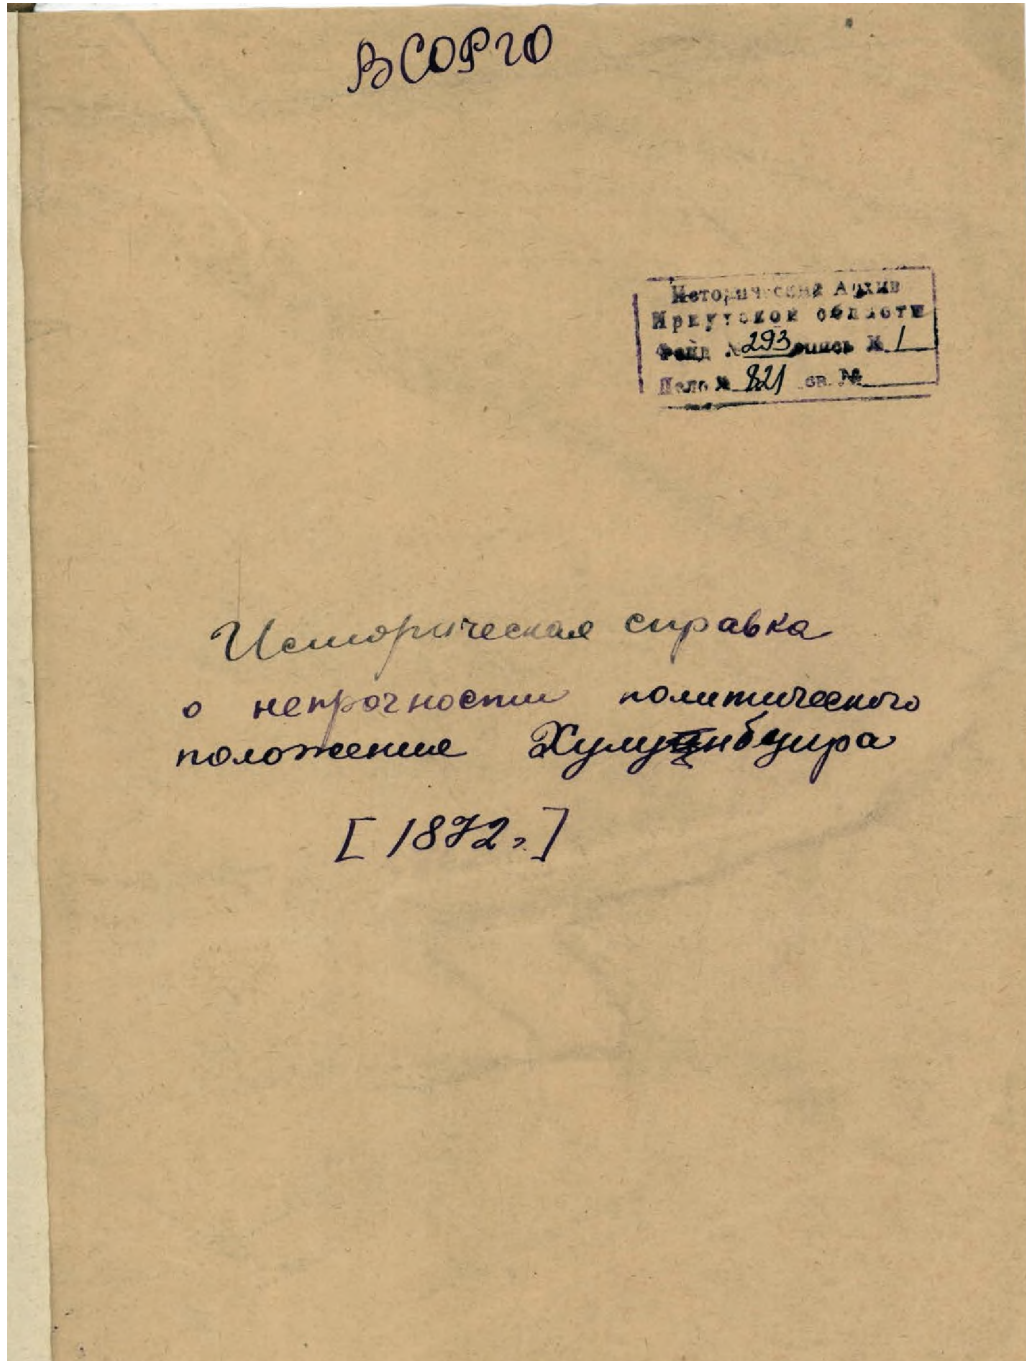 ВСОРГО
Исторический Архив
Иркутской области
Фонд № 293 опись № 1
Дело № 821 св. №
Историческая справка
о непрочности политического
положения
[1872 г.]